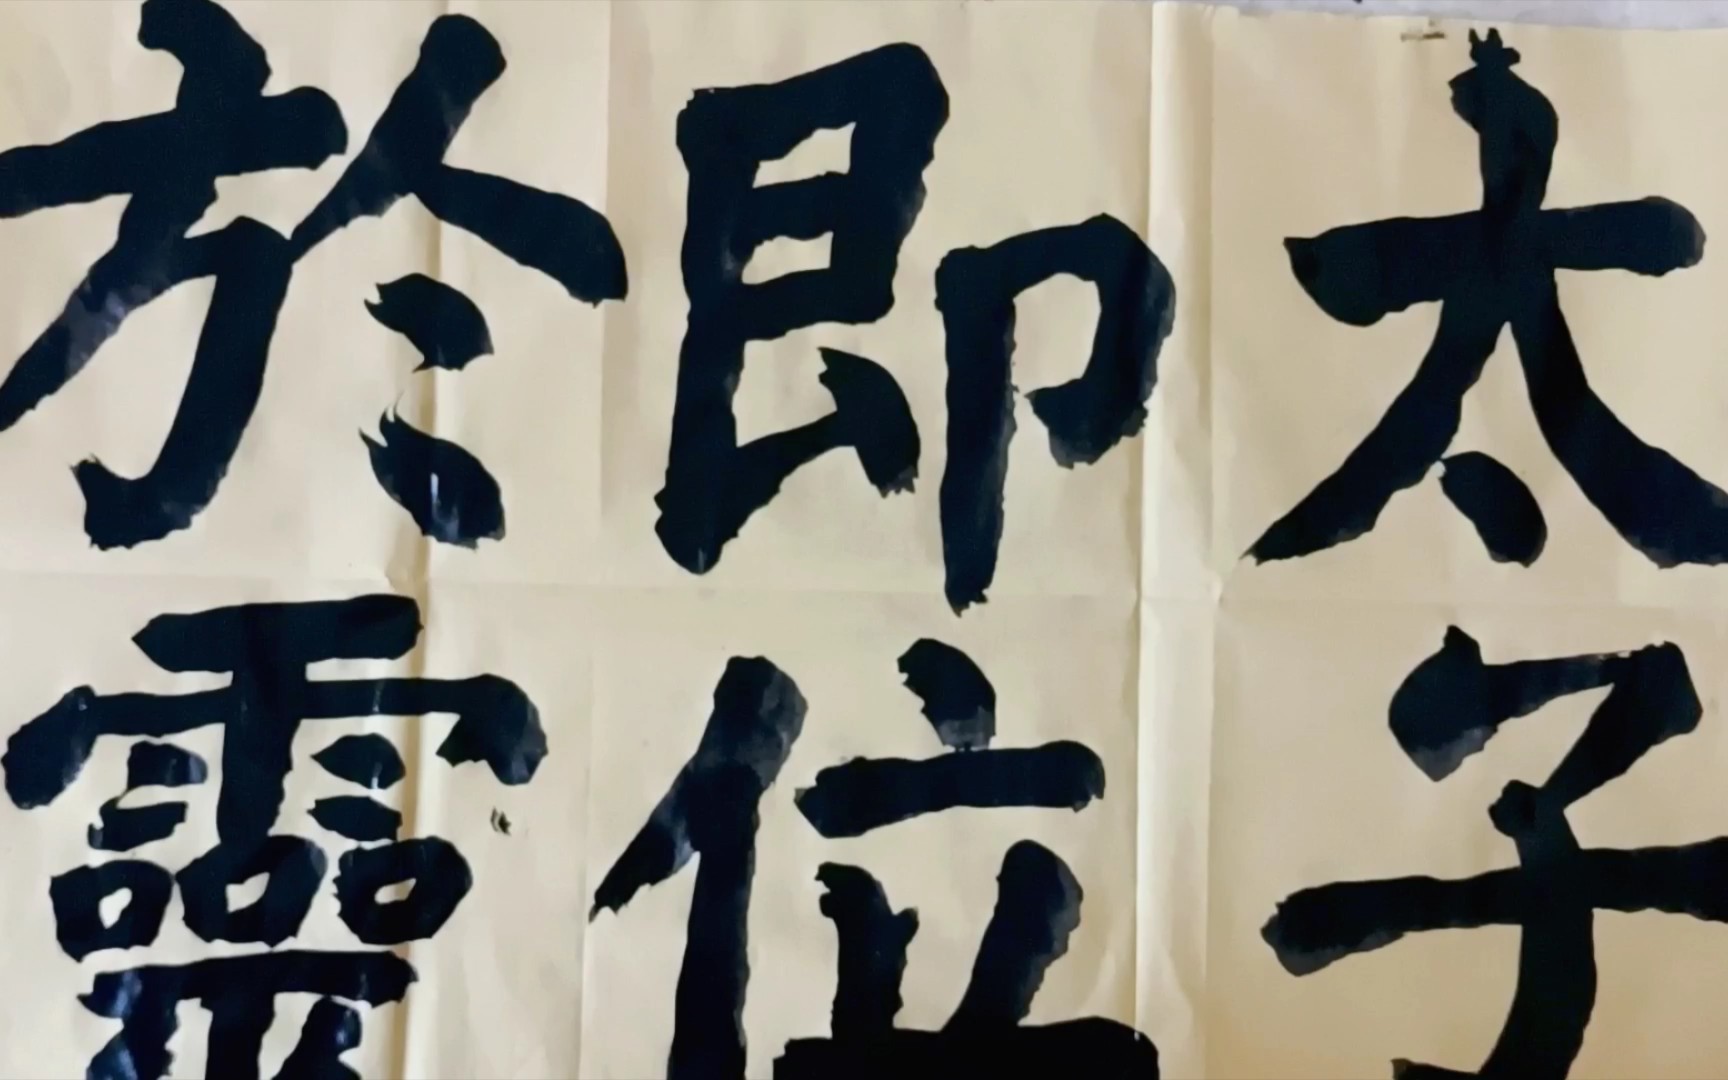 太子
即位
於靈